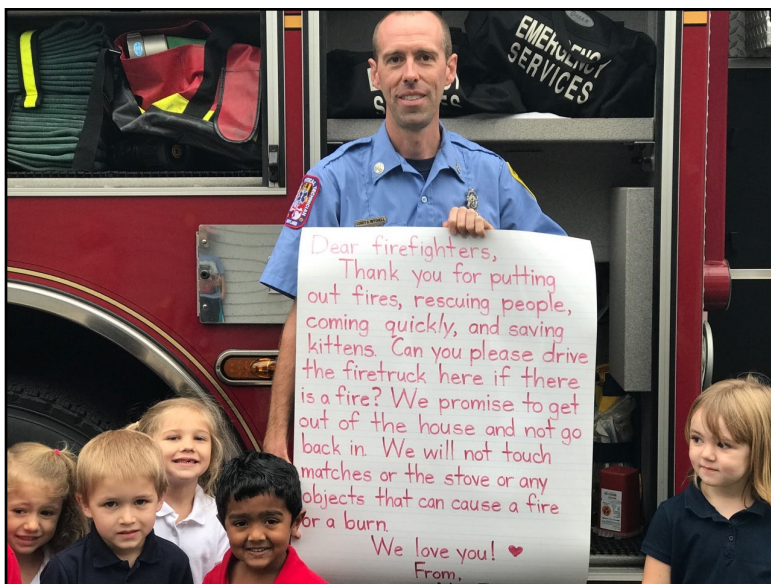 EMERGENCY
SERVICES
Dear firefighters,
Thank you for putting
out fires, rescuing people,
coming quickly, and saving
kittens. Can you please drive
the firetruck here if there
is a fire? We promise to get
out of the house and not go
back in. We will not touch
matches or the stove or any
objects that can cause a fire
or a burn.
We love you! ♥
From,